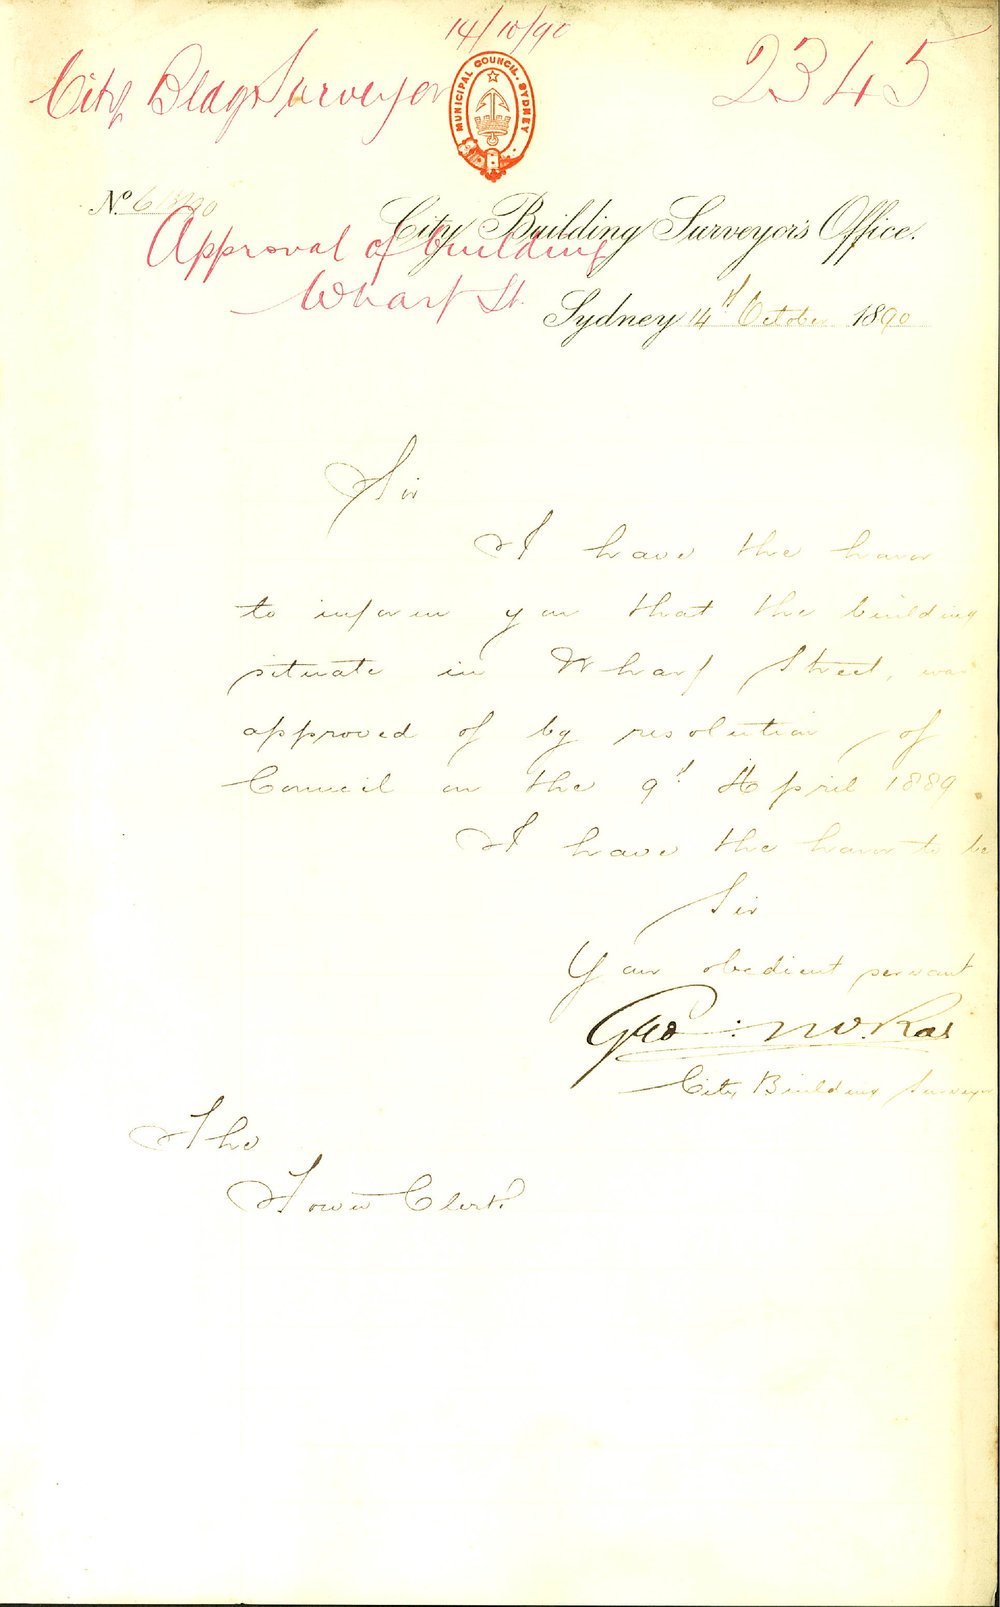 14/10/90
City Bldg Surveyor 2345
MUNICIPAL COUNCIL. SYDNEY
No.
City Building Surveyor's Office.
Approval of building
Wharf St.
Sydney 14th October 1890
Sir
I have the honor
to inform you that the building
situate in Wharf Street, was
approved of by resolution of
Council on the 9th April 1889
I have the honor to be
Sir
Your obedient servant
Geo:
City Building Surveyor
The
Town Clerk